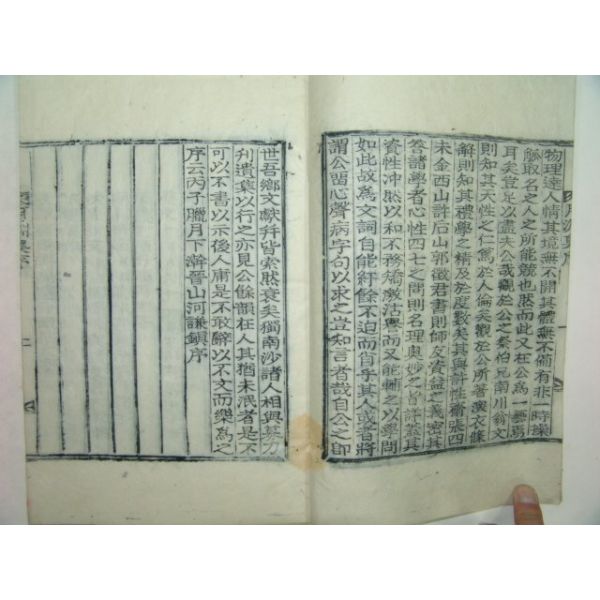 物理達人情其境無不開其體無不備有非一時操
觚取名之人之所能競也然而此又在公爲一藝焉
耳矣豈足以盡夫公哉觀於公之祭伯兄南川翁文
則知其天性之仁篤於人倫矣觀於公所著深衣條
解則知其禮學之精及於度數矣其與許性齋張四
未金西山許后山郭徵君書則師友資益之義密其
答諸學者心性四七之問則名理奧妙之旨詳蓋其
資性冲然以和不務矯激沽與而又能輔之以學問
如此故爲文詞自能紆餘不迫而肖乎其人或者將
謂公留心聲病字句以求之豈知言者哉自公之卽
世吾鄕文獻幷皆索然衰矣獨南沙諸人相與募力
刋遺藁以行之亦見公餘韻在人其猶未泯者是不
可以不書以示後人庸是不敢辭以不文而樂爲之
序云丙子臘月下澣晉山河謙鎭序